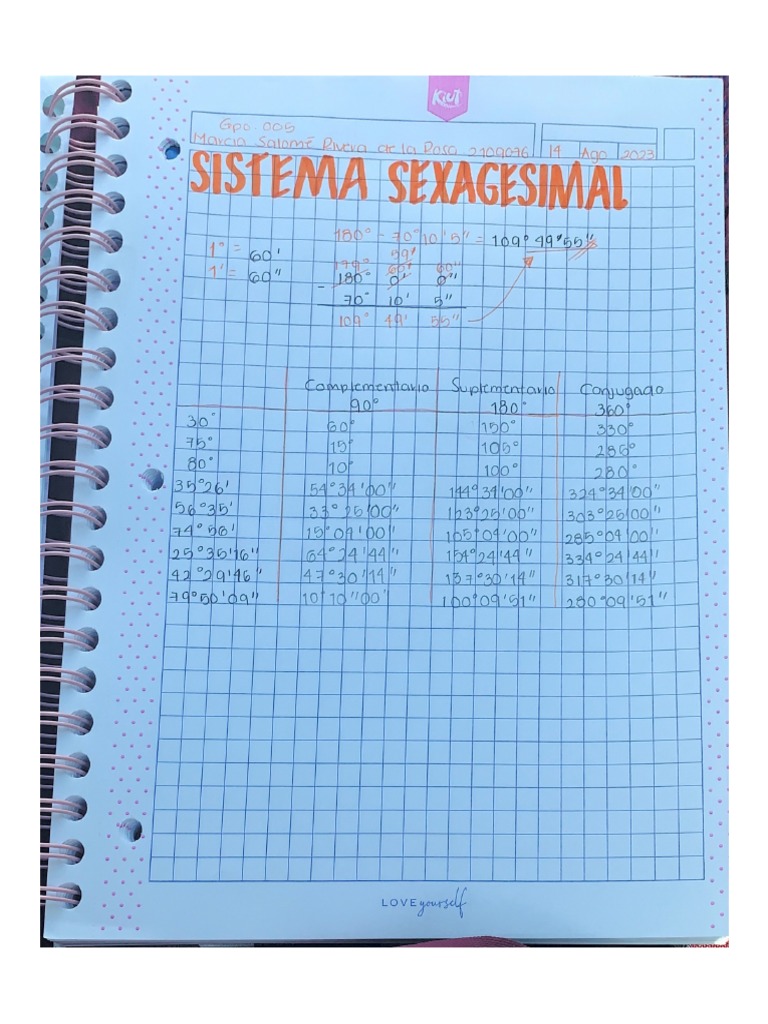 Kiut
Gpo. 005
Marcia Salomé Rivera de la Rosa 2109076 14 Ago 2023
SISTEMA SEXAGESIMAL
180° - 70°10'5" = 109° 49' 55"
1° = 60'
1' = 60"
59'
179° 60' 60"
180° 0' 0"
- 70° 10' 5"
109° 49' 55"
Complementario Suplementario Conjugado
90° 180° 360°
30° 60° 150° 330°
75° 15° 105° 285°
80° 10° 100° 280°
35°26' 54°34'00" 144°34'00" 324°34'00"
56°35' 33°25'00" 123°25'00" 303°25'00"
74°56' 15°04'00" 105°04'00" 285°04'00"
25°35'16" 64°24'44" 154°24'44" 334°24'44"
42°29'46" 47°30'14" 137°30'14" 317°30'14"
79°50'09" 10°10"00' 100°09'51" 280°09'51"
LOVE yourself